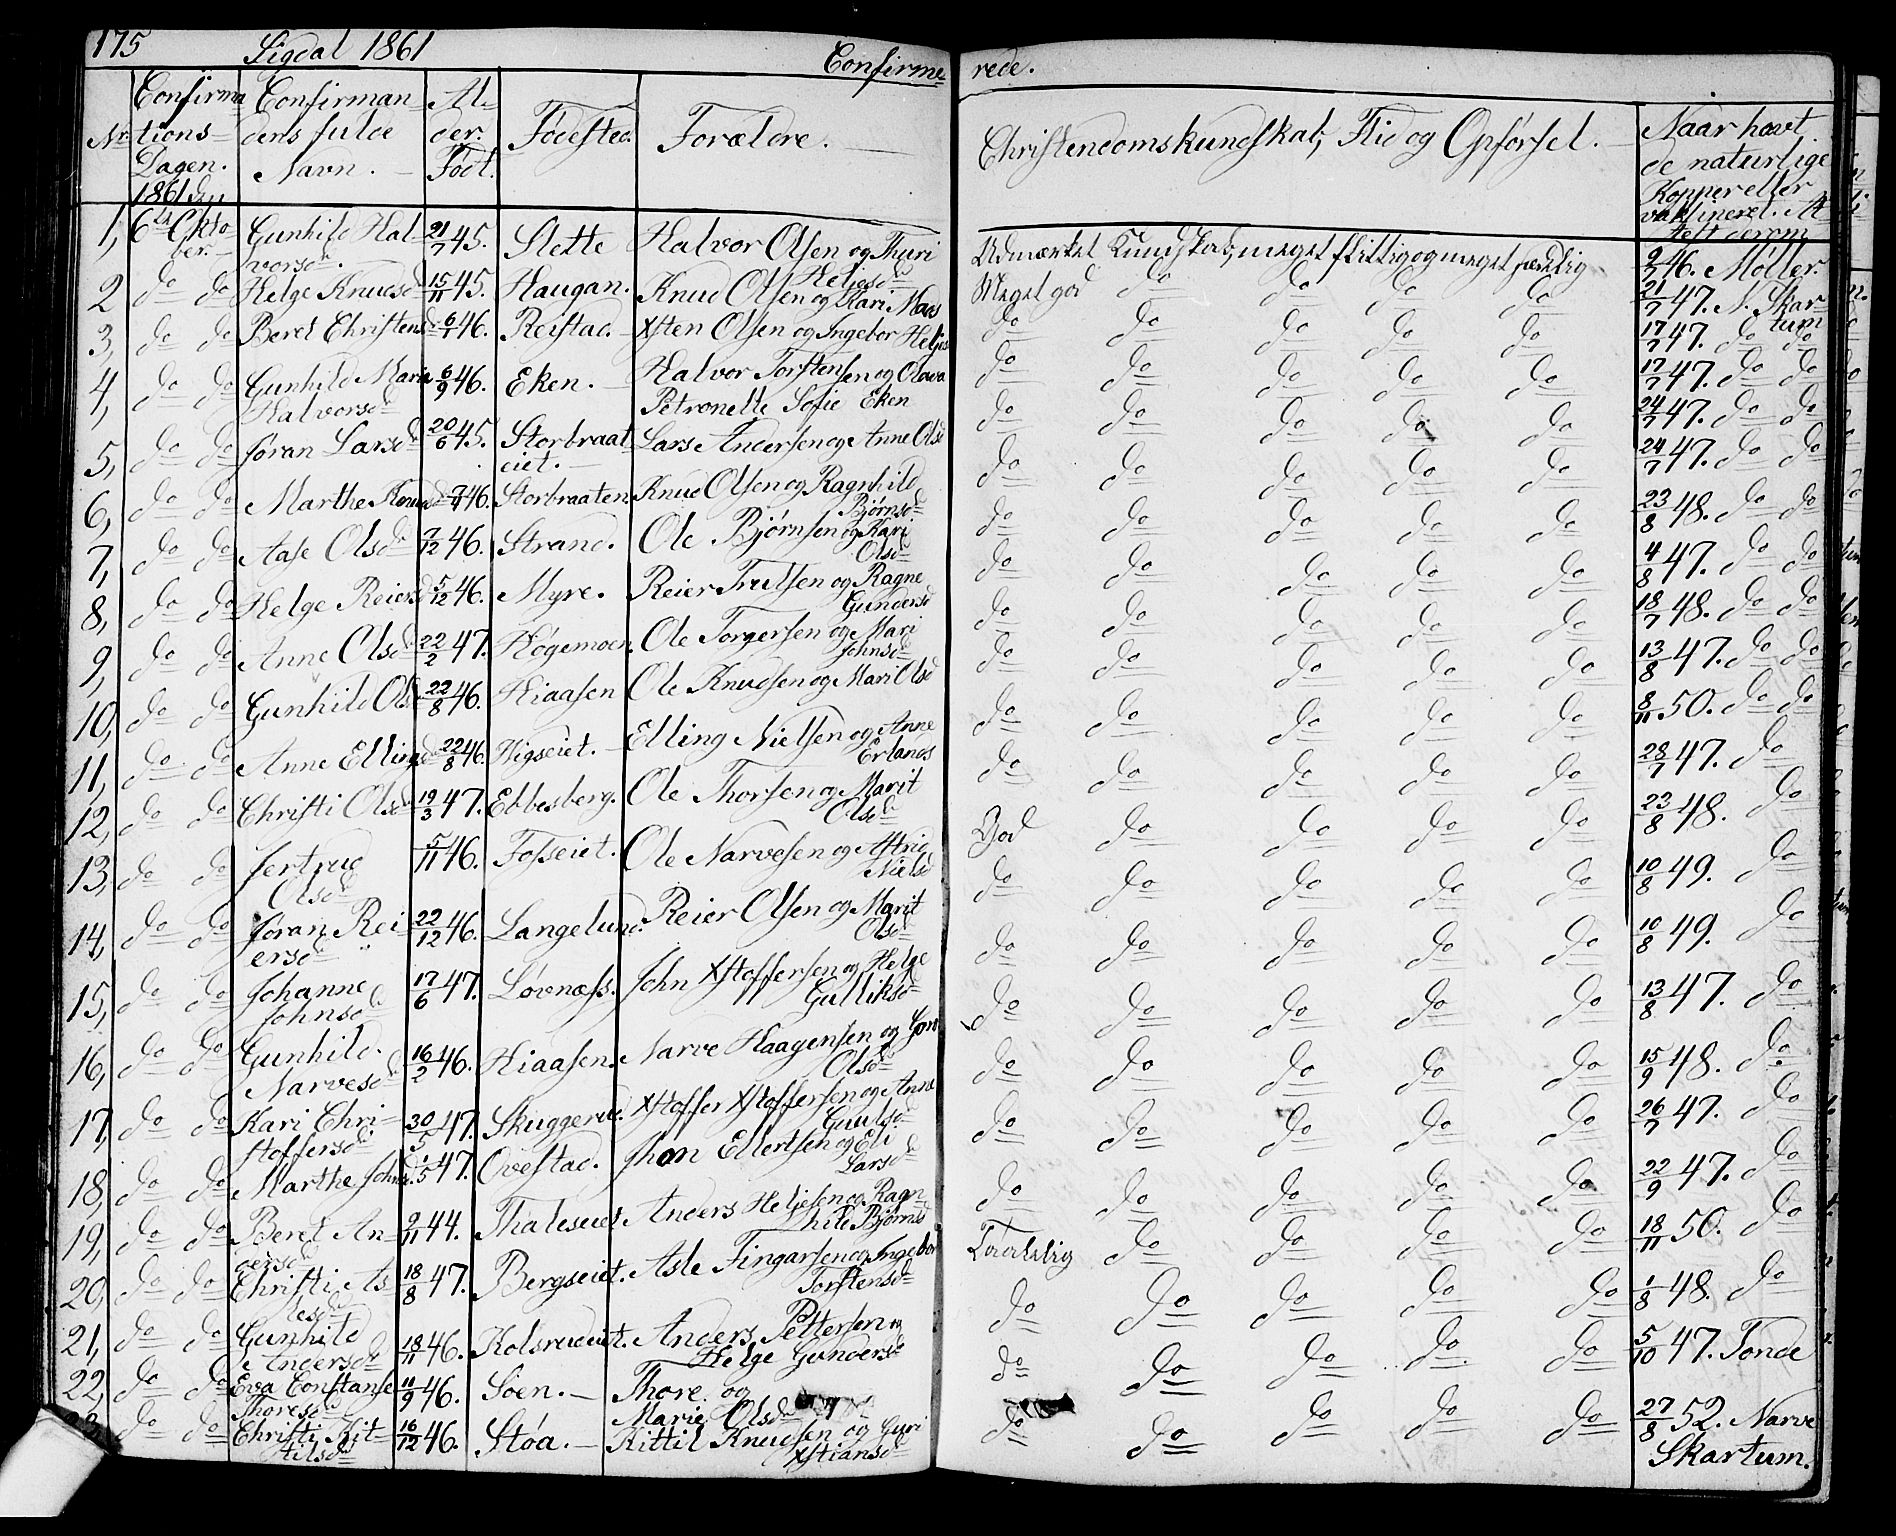 175 Sigdal 1861 Confirme- rede.
Nr. Confirmationsdagen. 1861 den Confirmandens fulde Navn. Alder. Født. Fødested. Forældre. Christendomskundskab, Flid og Opførsel. Naar havt de naturlige Kopper eller vaksineret. Attest derom
1, 6te Okto- Gunhild Hal- 21/7 45. Slette Halvor Olsen og Thuri Udmærket Kundskab, meget flittig og meget sædelig 9/7 46. Møller.
ber. vorsd. Heljesd
2 do do Helge Knudsd 15/11 45. Haugan. Knud Olsen og Kari Mads Meget god do do do do 21/7 47. N. Skar-
tum
3, do do Beret Christensd 6/1 46. Reistad. Xsten Olsen og Ingebor Heljes do do do do do 17/7 47. do do
4, do do Gunhild Maria 6/9 46. Eken. Halvor Torstensen og Olava do do do do do 17/7 47. do do
Halvorsd Petronelle Sofie Eken
5, do do Jøran Larsd 20/6 45. Storbraat Lars Andersen og Anne Olsd do do do do do 24/7 47. do do
eiet.
6, do do Marthe Knudsd 46. Storbraaten. Knud Olsen og Ragnhild do do do do do 24/7 47. do do
Bjørnsd
7, do do Aase Olsd 7/12 46. Strand. Ole Bjørnsen og Kari do do do do do 23/8 48. do do
Olsd
8, do do Helge Reiersd 5/12 46. Myre. Reier Trulsen og Ragne do do do do do 4/8 47. do do
Gundersd
9, do do Anne Olsd 22/2 47. Høgemoen. Ole Torgersen og Mari do do do do do 18/7 48. do do
Johnsd
10, do do Gunhild Olsd 22/8 46. Hiaasen Ole Knudsen og Mari Olsd do do do do do 13/8 47. do do
11, do do Anne Ellingsd 22/8 46. Higseiet. Elling Nielsen og Anne do do do do do 8/11 50. do do
Erlands
12, do do Christi Olsd 19/3 47. Ebbesberg. Ole Thorsen og Marit do do do do do 28/7 47. do
Olsd
13, do do Jertrud 5/11 46. Fosseiet. Ole Narvesen og Astrid God do do do do 23/8 48. do
Olsd Nielsd
14, do do Jøran Rei 22/12 46. Langelund. Reier Olsen og Marit do do do do do 10/8 49. do
ersd Olsd
15, do do Johanne 17/6 47. Løvnæss. John Xstoffersen og Helge do do do do do 10/8 49. do
Johnsd Gulliksd
16, do do Gunhild 16/2 46. Hiaasen. Narve Haagensen og Gun do do do do do 13/8 47. do
Narvesd Olsd
17, do do Kari Chri- 30/5 47. Skuggerud. Xstoffer Xstoffersen og Anne do do do do do 15/9 48. do
stoffersd Guulsd
18, do do Marthe Johnsd 1/5 47. Ovestad. Jhon Ellertsen og Eli do do do do do 26/7 47. do
Larsd
19, do do Beret An- 2/11 44. Thaleseiet Anders Heljesen og Ragn- do do do do do 22/9 47. do
dersd hild Bjørnsd
20, do do Christi As 18/8 47. Bergseiet. Asle Fingarsen og Ingebor Taaelelig do do do do 18/11 50. do
lesd Torstensd
21, do do Gunhild 18/11 46. Kolsrudeiet. Anders Pettersen og do do do do do 1/8 48. do
Andersd Helge Gundersd
22, do do Eva Constanse 11/9 46. Soen. Thore og do do do do do 5/10 47. Tonde
Thoresd Marie Olsd
23, do do Christi Kit- 16/12 46. Støa. Kittil Knudsen og Guri do do do do do 27/8 52. Narve
tilsd Xstiansd Skartum.